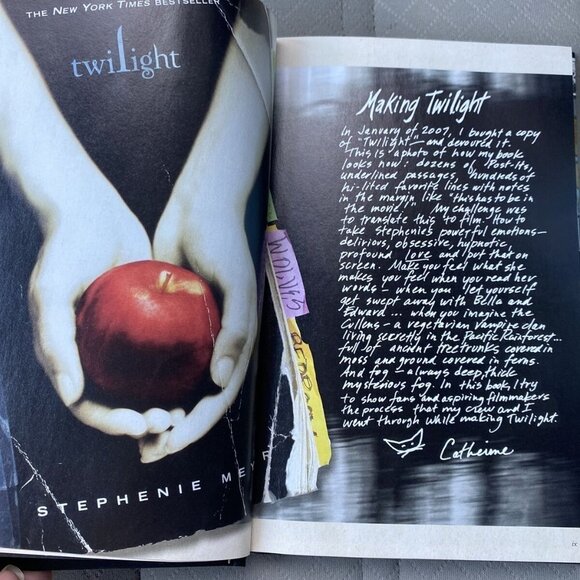 THE NEW YORK TIMES BESTSELLER
twilight
STEPHENIE MEY
Making Twilight
In January of 2007, I bought a copy
of "Twilight" – and devoured it.
This is a photo of how my book
looks now: dozens of Post-its,
underlined passages, hundreds of
hi-lited favorite lines with notes
in the margin like "this has to be in
the movie!" My challenge was
to translate this to film. How to
take Stephenie's powerful emotions–
delirious, obsessive, hypnotic,
profound love – and put that on
screen. Make you feel what she
makes you feel when you read her
words – when you let yourself
get swept away with Bella and
Edward ... when you imagine the
Cullens – a vegetarian vampire clan
living secretly in the Pacific Rainforest...
full of ancient tree trunks covered in
moss and ground covered in ferns.
And fog – always deep, thick
mysterious fog. In this book, I try
to show fans and aspiring filmmakers
the process that my crew and I
went through while making Twilight.
Catherine
ix